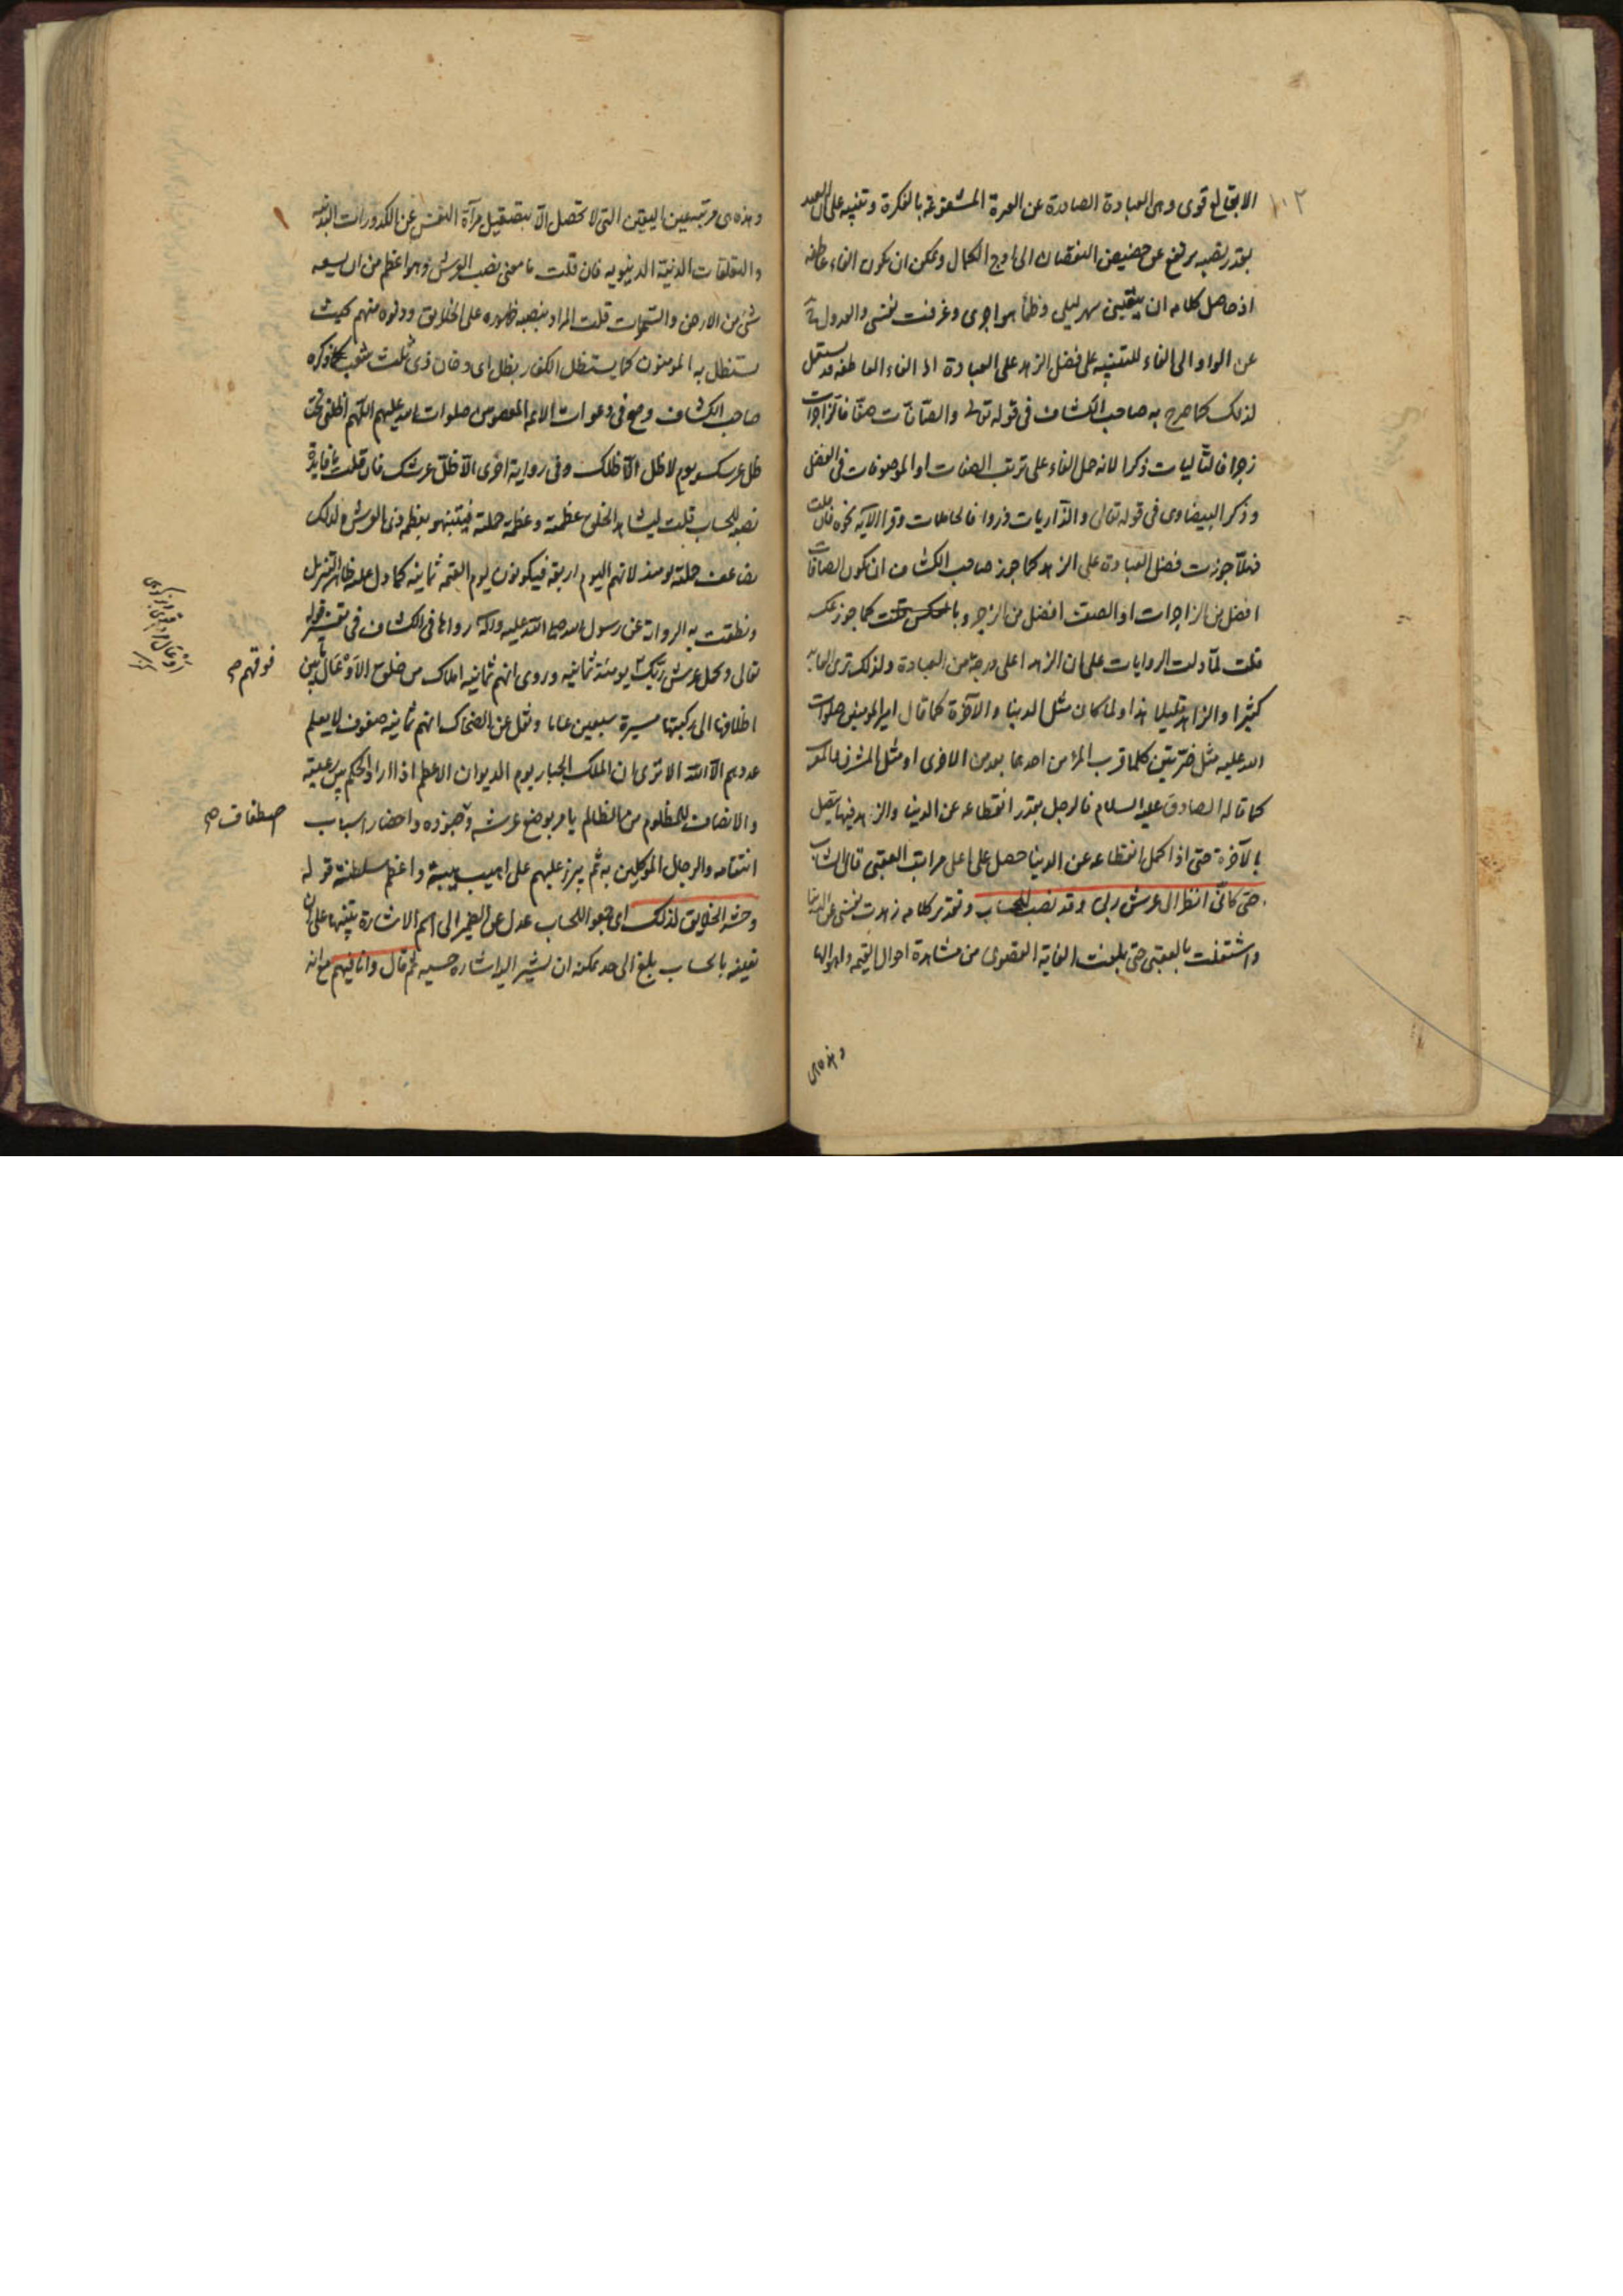 ١٠٢
الايقاع اقوى وهى العبادة الصادرة عن المشعوفة بالفكرة وتنبيه على ان العبد
بقدر نصبه يرتفع عن حضيض النقصان الى اوج الكمال ويمكن ان يكون الفاء عاطفة
اذ حاصل كلامه ان يقينى سهر ليلى وظمأ هواجرى وعزفت نفسى والعدول
عن الواو الى الفاء للتنبيه على فضل الزهد على العبادة اذ الفاء العاطفة قد يستعمل
لذلك كما صرح به صاحب الكشاف فى قوله تع والصافات صفا فالزاجرات
زجرا فالتاليات ذكرا لانه حمل الفاء على ترتب الصفات او الموصوفات فى الفضل
وذكر البيضاوى فى قوله تعالى والذاريات ذروا فالحاملات وقرا الآيه نحوه فان قلت
فهلا جوزت فضل العبادة على الزهد كما جوز صاحب الكشاف ان يكون الصافات
افضل من الزاجرات او الصف افضل من الزجر وبالعكس قلت كما جوز عكسه
قلت لما دلت الروايات على ان الزهد اعلى درجة من العبادة ولذلك ترى العابد
كثيرا والزاهد قليلا هذا ولما كان مثل الدنيا والآخرة كما قال امير المومنين صلوات
الله عليه مثل ضرتين كلما قرب المرء من احدهما بعد من الاخرى او مثل المشرق والمغرب
كما قاله الصادق عليه السلام فالرجل بقدر انقطاعه عن الدنيا والزهد فيها يتصل
بالآخرة حتى اذا كمل انقطاعه عن الدنيا حصل على اعلى مراتب العقبى قال الشاب
حتى كانى انظر الى عرش ربى وقد نصب للحساب وتقدير كلامه زهدت نفسى عن الدنيا
واشتغلت بالعقبى حتى بلغت الغاية القصوى من مشاهدة احوال القيمه واهوالها
وهذه هى
وهذه هى مرتبة عين اليقين التى لا تحصل الا بتصقيل مرآة النفس عن الكدورات البدنيه
والتعلقات الدنية الدنيويه فان قلت ما معنى نصب العرش وهو اعظم من ان يسعه
شئ من الارض والسموات قلت المراد بنصبه ظهوره على الخلايق ودنوه منهم بحيث
يستظل به المومنون كما يستظل الكفار بظل اى دخان ذى ثلث شعب كما ذكره
صاحب الكشاف وصح فى دعوات الائمه المعصومين صلوات الله عليهم اللهم اظلنى تحت
ظل عرشك يوم لا ظل الا ظلك وفى رواية اخرى الا ظل عرشك فان قلت ما فايدة
نصبه للحساب قلت ليشاهد الخلق عظمته وعظمة حملته فيتنبهوا بعظمة ذى العرش ولذلك
يضاعف حملته يومئذ لانهم اليوم اربعة فيكونون يوم القيمه ثمانيه كما دل عليه ظاهر التنزيل
ونطقت به الرواية عن رسول الله صلى الله عليه وآله رواها فى الكشاف فى تفسير قوله
تعالى ويحمل عرش ربك يومئذ ثمانيه وروى انهم ثمانيه املاك من خلق الاوعال ما بين
فوقهم صح
اظلافها الى ركبتها مسيرة سبعين عاما ونقل عن الضحاك انهم ثمانيه صفوف لا يعلم
عددهم الا الله الا ترى ان الملك الجبار يوم الديوان الاعظم اذا اراد الحكم بين رعيته
والانصاف للمظلوم من الظالم يامر بوضع عرشه وجنوده واحضار اسباب
اصطفاف صح
انتقامه والرجال الموكلين به ثم يبرز عليهم على اهيب هيبة واعظم سلطنة قوله
وحشر الخلايق لذلك اى جمعوا للحساب عدل عن الضمير الى اسم الاشارة تنبيها على ان
تعينه بالحساب بلغ الى حد يمكنه ان يشير اليه اشاره حسيه ثم قال وانا فيهم مع انه